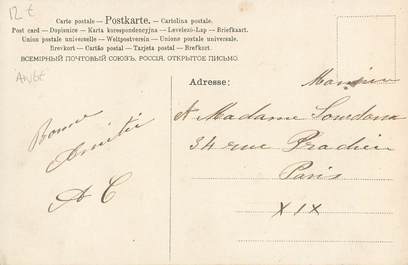 12 €
ANGE
Carte postale — Postkarte. — Cartolina postale.
Post card — Dopisnice — Karta korespondencyjna — Levelező-Lap — Briefkaart.
Union postale universelle — Weltpostverein — Unione postale universale.
Brevkort — Cartão postal — Tarjeta postal — Brefkort.
ВСЕМІРНЫЙ ПОЧТОВЫЙ СОЮЗЪ, РОССІЯ, ОТКРЫТОЕ ПИСЬМО.
Bonne
Amitié
A C
Adresse:
Monsieur
et Madame
34 rue Pradier
Paris
XIX